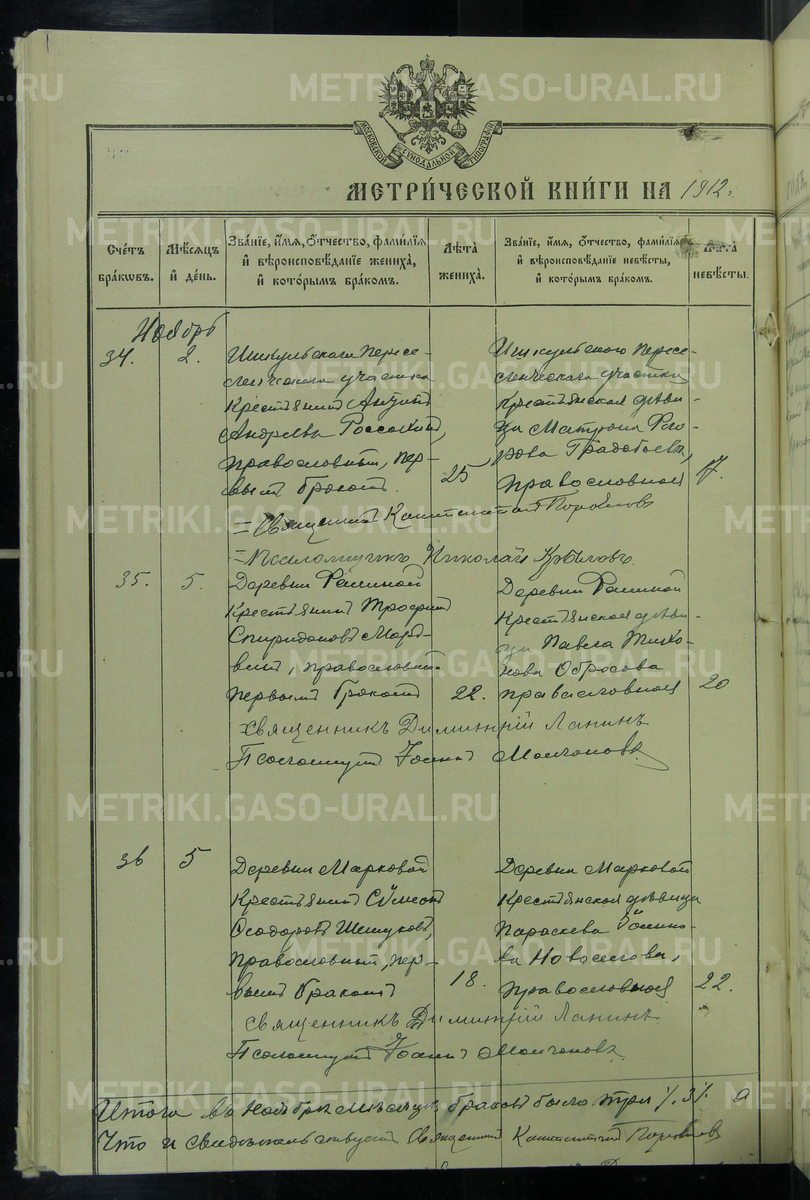 МЕТРИ́ЧЕСКОЙ КНИ́ГИ НА 1912 г.
Сче́тъ бра́кωвъ.
Мѣ́сяцъ и҆ де́нь.
Зва́нїе, и҆́мя, ѻ҆́тчество, фами́лїя и҆ вѣроисповѣ́данїе жениха̀, и҆ кото́рымъ бра́комъ.
Лѣ́та жениха̀.
Зва́нїе, и҆́мя, ѻ҆́тчество, фами́лїя и҆ вѣроисповѣ́данїе невѣ́сты, и҆ кото́рымъ бра́комъ.
Лѣ́та невѣ́сты.
МОСКОВСКОЙ СѴНОДАЛЬНОЙ ТИПОГРАФІИ
Ноябрь
34.
2.
пересе-
ленческаго участка
Крестьянинъ
Андреевъ
православный, пер-
вымъ бракомъ.
25
пересе-
ленческаго участка
крестьянская дѣви-
ца Матрона
православная
17.
= Священникъ Константинъ
= Псаломщикъ Николай Крыловъ
35.
5.
Деревни
Крестьянинъ Трофимъ
Спиридоновъ Мард-
винъ, православный
первымъ бракомъ
22.
Деревни
Крестьянская дѣви-
ца Павла Тихо-
нова Обросова
православная
20
Священникъ Димитрій Лапинъ
Псаломщикъ Іоаннъ Молчановъ
36
5
Деревни Марковой
Крестьянинъ Сѵмеонъ
Ѳеодоровъ
православный, пер-
вымъ бракомъ
18.
Деревни Марковой
Крестьянская дѣвица
Параскева
ва Новоселова,
православная
22.
Священникъ Димитрій Лапинъ
Псаломщикъ Іоаннъ Молчановъ
Итого въ Ноябрѣ мѣсяцѣ браковъ было три /.3/.
Что и свидѣтельствуетъ Священникъ Константинъ
METRIKI.GASO-URAL.RU